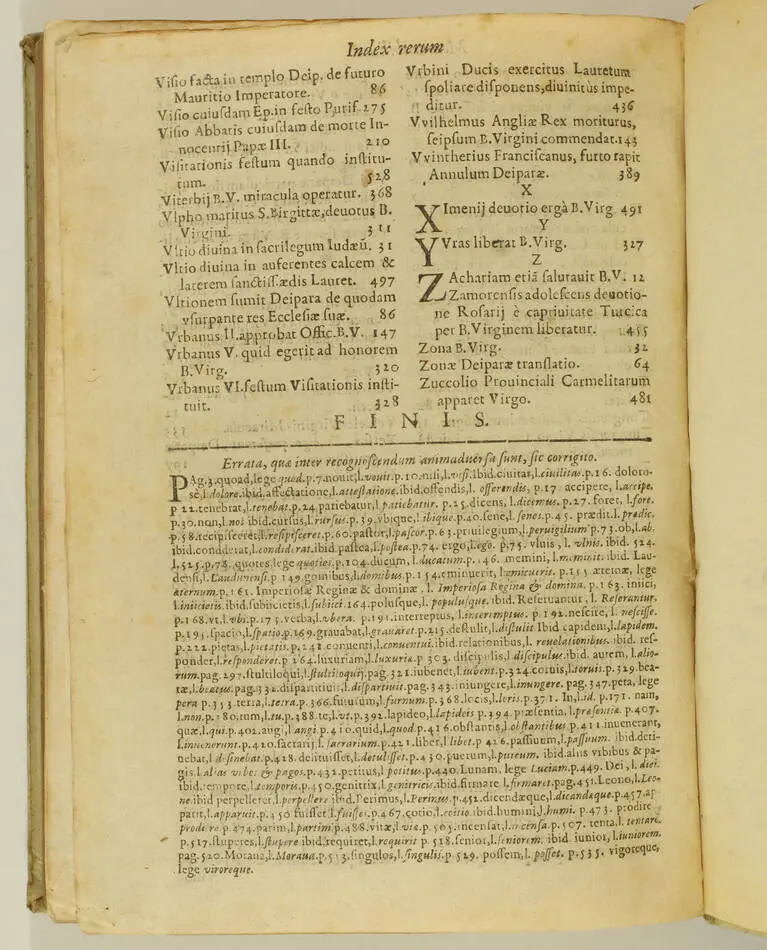 Index rerum
Visio facta in templo Deip. de futuro
Mauritio Imperatore. 86
Visio cuiusdam Ep. in festo Purif. 275
Visio Abbatis cuiusdam de morte In-
nocentij Papæ III. 210
Visitationis festum quando institu-
tum. 528
Viterbij B.V. miracula operatur. 368
Vlpho maritus S. Birgittæ, deuotus B.
Virgini. 311
Vltio diuina in sacrilegum Iudæū. 31
Vltio diuina in auferentes calcem &
laterem sanctiss. ædis Lauret. 497
Vltionem sumit Deipara de quodam
vsurpante res Ecclesiæ suæ. 86
Vrbanus II. approbat Offic. B.V. 147
Vrbanus V. quid egerit ad honorem
B.Virg. 320
Vrbanus VI. festum Visitationis insti-
tuit. 328
Vrbini Ducis exercitus Lauretum
spoliare disponens, diuinitùs impe-
ditur. 436
Vvilhelmus Angliæ Rex moriturus,
seipsum B. Virgini commendat. 143
Vvintherius Franciscanus, furto rapit
Annulum Deiparæ. 389
X
XImenij deuotio ergà B.Virg 491
Y
YVras liberat B.Virg. 327
Z
ZAchariam etiā salutauit B.V. 12
Zamorensis adolescens deuotio-
ne Rosarij è captiuitate Turcica
per B. Virginem liberatur. 455
Zona B.Virg. 32
Zonæ Deiparæ translatio. 64
Zuccolio Prouinciali Carmelitarum
apparet Virgo. 481
F I N I S.
Errata, quæ inter recognoscendum animaduersa sunt, sic corrigito.
PAg. 3. quoad, lege quod. p.7. nouit, l. vouit. p.10. nisi, l. visi. ibid. ciuitas, l. ciuilitas. p.16. doloro-
se, l. dolore. ibid. affectatione, l. attestatione. ibid. offendis, l. offerendis, p.17 accipere, l. accipe.
p 22. tenebrat, l. tenebat. p.24. patiebatur, l. patiebatur. p.25. dicens, l. dicemus. p.27. foret, l. fore.
p.30. non, l. nos ibid. cursus, l. rursus. p.39. vbique, l. ibique. p.40. sene, l. senes. p.45. prædit. l. prædic.
p.58. recipisceret, l. resipisceret. p.60. pastor, l. pascor. p.63. priuilegium, l. peruigilium p.73. ob, l. ab.
ibid. condderat, l. condiderat. ibid. pastea, l. postea. p.74. ergo, l. ego. p.75. vluis, l. vlnis. ibid. 524.
l. 525. p.78. quotes, lege quoties. p.104. ducum, l. ducatum. p.146. memini, l. meminit. ibid. Lau-
densi, l. Laudunensi. p 149. gomibus, l. domibus. p.154. eminuerit, l. emicuerit. p.155 æteinæ, lege
æternum. p.161. Imperiosæ Reginæ & dominæ, l. Imperiosa Regina & domina. p.163. inijci,
l. inijcietis. ibid. subijcietis, l. subijci. 164. polusque, l. populusque. ibid. Referuantur, l. Referantur.
p.168. vt, l. vbi. p.175. verba, l. vbera. p.191. interreptus, l. interemptus. p.192. nescire, l. nescisse.
p.195. spacio, l. spatio. p.169. grauabat, l. grauaret. p.215. destulit, l. distulit Ibid. capidem, l. lapidem.
p.222. pietas, l. pietatis. p.248. conuenzi, l. conuentui. ibid. relationibus, l. reuelationibus. ibid. res-
ponder, l. responderet. p 264. luxuriam, l. luxuria. p. 303. discipulis, l discipulus. ibid. autem, l. alio-
rum. pag. 297. stultiloqui, l. stultiloquij. pag. 321. iubenet, l. iubent. p.324. coruis, l. toruis. p.329. bea-
tæ, l. beatus. pag. 332. dispartitiuit, l. dispartiuit. pag. 343. iniungere, l. inungere. pag. 347. peta, lege
pera p 353. terra, l. tetra. p.366. fututum, l. furnum. p.368. locis, l. loris. p.371. In, l. id. p 171. nam,
l. non. p.380. tum, l. tu. p.388. te, l. vt. p.392. lapideo, l. lapideis p 394. præsentia, l. præsentiæ. p.407.
quæ, l. qui. p.402. augi, l. angi. p.410. quid, l. quod. p.416. obstantis, l. obstantibus. p.411. inuenerant,
l. inuenerunt. p.420. sacrarij, l. sacrarium. p.421. liber, l. libet. p 426. passiuum, l. passuum. ibid. deti-
nebat, l desinebat. p.428. delituisset, l. detulisset. p.430. puerum, l. puteum. ibid. alius vibibus & pa-
gis, l. alias vibes & pagos. p.432. petitus, l potitus. p.440. Lunam, lege Luciam. p.449. Dei, l. diei.
ibid. tempore, l. temporis. p.450. genitrix, l. genitricis. ibid. firmare l. firmaret. pag. 451. Leono, l. Leo-
ne. ibid perpelleret, l. perpellere ibid. Perimus, l. Perinus. p.452. dicendæque, l. dicandæque. p.457. ap
parit, l. apparuit. p.450 fuisset, l. fuisse. p.467. cotio, l. coitio. ibid. humini, l. humi. p.473. prodire
prodere p.474. parim, l. partim. p.488. vitæ, l. via. p.505. incensat, l. incensa. p.507. tenta, l. tentare.
p.517. stuperes, l. stupere. ibid. requiret, l. requirit p 518. senior, l. seniorem. ibid iunior, l. iuniorem.
pag. 520. Morana, l. Moraua. p.513. singulos, l. singulis. p 529. possem, l. posset. p.535. vigoreque,
lege viroreque.